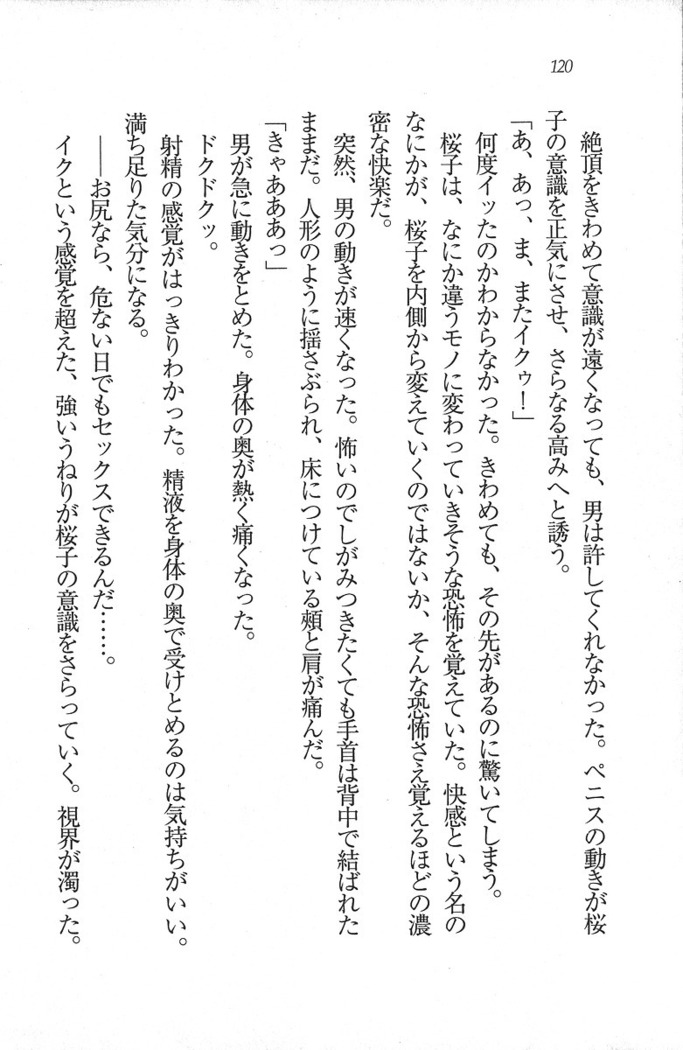 120
絶頂をきわめて意識が遠くなっても、男は許してくれなかった。ペニスの動きが桜
子の意識を正気にさせ、さらなる高みへと誘う。
「あ、あっ、ま、またイクゥ！」
何度イッたのかわからなかった。きわめても、その先があるのに驚いてしまう。
桜子は、なにか違うモノに変わっていきそうな恐怖を覚えていた。快感という名の
なにかが、桜子を内側から変えていくのではないか、そんな恐怖さえ覚えるほどの濃
密な快楽だ。
突然、男の動きが速くなった。怖いのでしがみつきたくても手首は背中で結ばれた
ままだ。人形のように揺さぶられ、床につけている頰と肩が痛んだ。
「きゃあああっ」
男が急に動きをとめた。身体の奥が熱く痛くなった。
ドクドクッ。
射精の感覚がはっきりわかった。精液を身体の奥で受けとめるのは気持ちがいい。
満ち足りた気分になる。
――お尻なら、危ない日でもセックスできるんだ……。
イクという感覚を超えた、強いうねりが桜子の意識をさらっていく。視界が濁った。